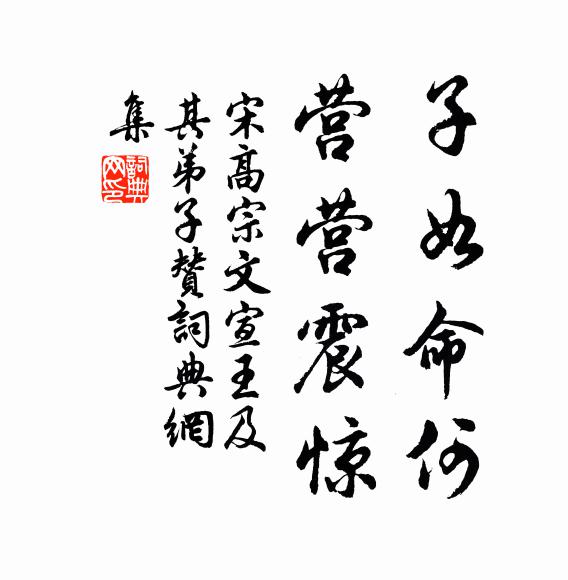 子如命何
营营震惊
宋高宗文宣王及
其弟子赞詞典網
集
詞典網印